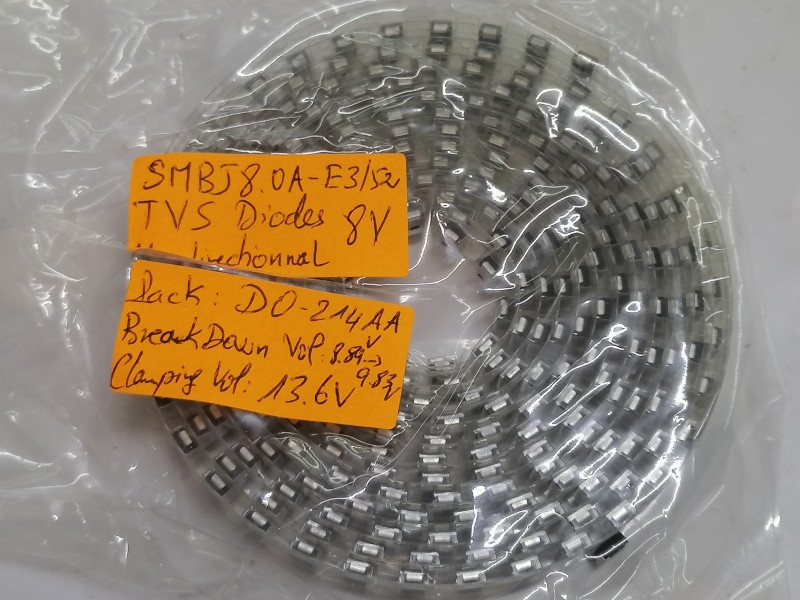 SMBJ8.0A-E3/52
TVS Diodes 8V
Pack: DO-214AA
BreakDown Vol: 8.89V->
9.83V
Clamping Vol: 13.6V